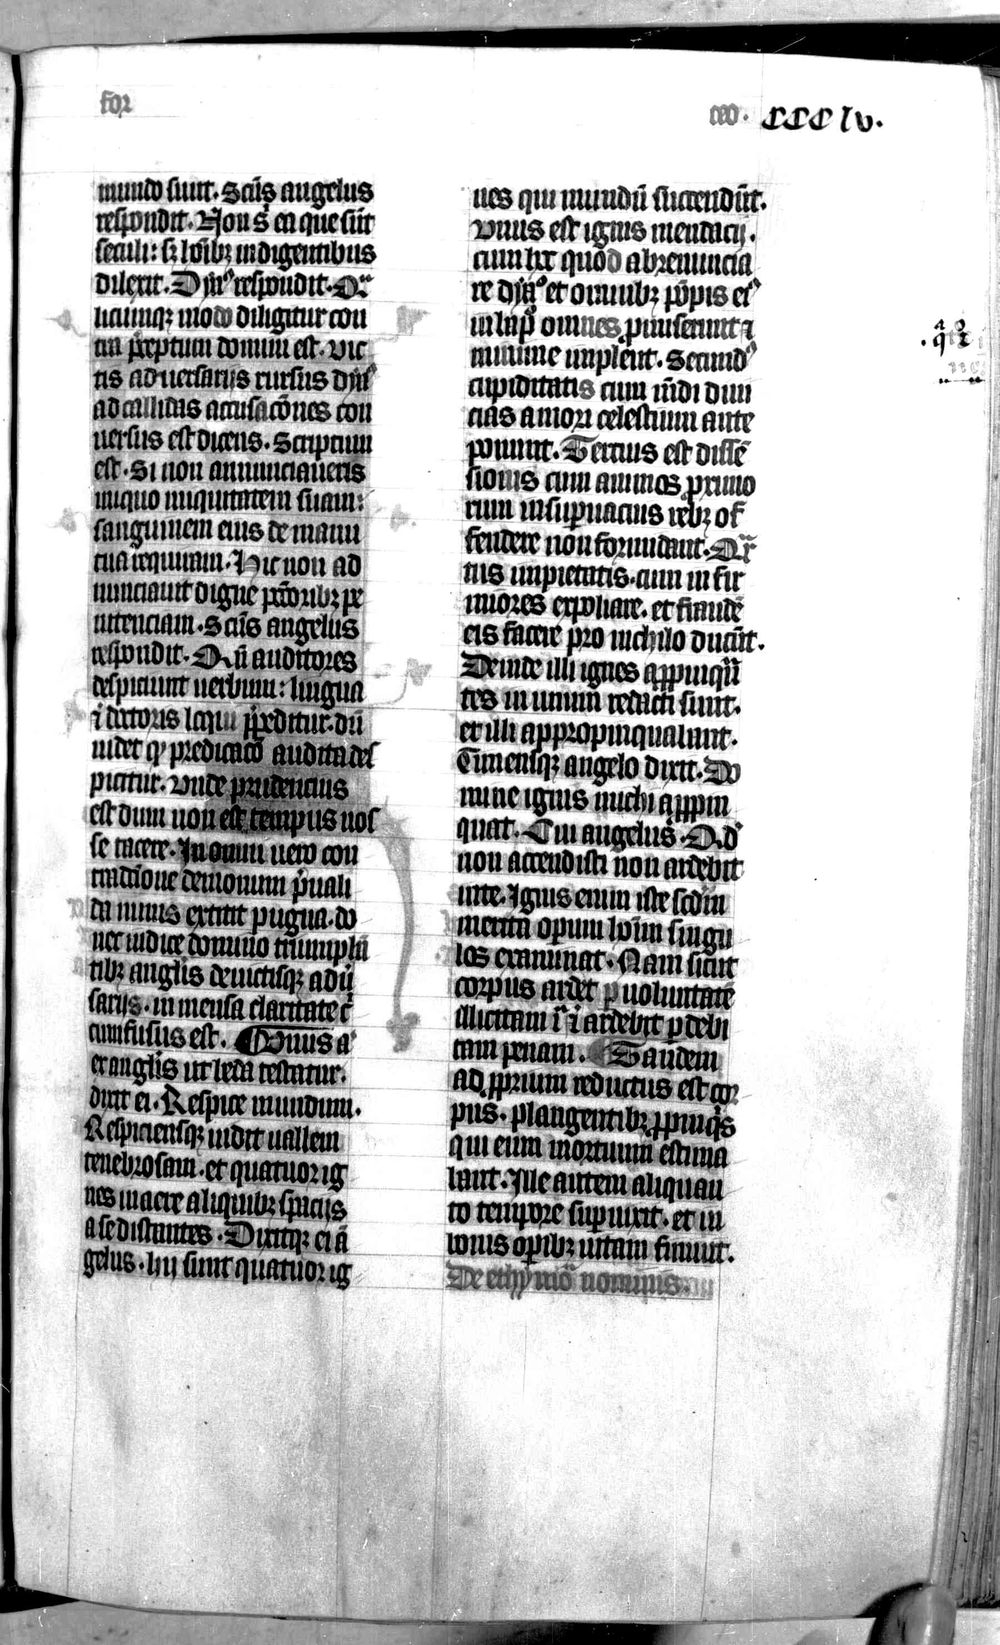 for
ceo. CCClv.
mundo sunt. Scūs angelus
respondit. Non s; ea que sūt
seculi: s; hōibꝫ indigentibus
dilexit. Dyaꝰ respondit. Q̄
ucumqꝫ modo diligitur con
tra p̄ceptum domini est. Vic
tis aduersarijs rursus dyaꝰ
ad callidas accusacōnes con
uersus est dicens. Scriptum
est. Si non annunciaueris
iniquo iniquitatem suam:
sanguinem eius de manu
tua requiram. Hic non ad
nunciauit digne pctōribꝫ pe
nitenciam. Scūs angelus
respondit. Qn̄ auditores
despiciunt uerbum: lingua
doctoris loqui p̄peditur. dū
uidet qꝫ predicacō audita des
picitur. Vnde prudencius
est dum non est tempus nos
se tacere. In omni uero con
tradictione demonum p̄uali
da nimis extitit pugna. do
nec iudice domino triumphā
tibꝫ anglis deuictisqꝫ adū
sarijs. in mensa claritate c̄
cumfusus est. Vnus aͣ
ex anglis ut leta testatur.
dixit ei. Respice mundum.
Respiciensqꝫ uidit uallem
tenebrosam. et quatuor ig
nes in aere aliquibꝫ spacijs
a se distantes. Dixitqꝫ ei ā
gelus. hij sunt quatuor ig
nes qui mundū succendūt.
Vnus est ignis mendacij.
cum hec quod abrenuncia
re dyaꝰ et omnibꝫ pōpis eiꝰ
in bap̄ omnes promiserunt ⁊
minime implent. Secundꝰ
cupiditatis cum mūdi diui
cias amori celestium ante
ponunt. Tercius est dissē
sionis cum animos proximo
rum in supuacuis rebꝫ of
fendere non formidant. Qr̄
tus impietatis. cum infir
miores expoliare. et fraudē
eis facere pro nichilo ducūt.
Deinde illi ignes appinqū
tes in unum redacti sunt.
et illi appropinquabant.
Timensqꝫ angelo dixit. Do
mine ignis michi appin
quat. Cui angelus. Qd̄
non accendisti non ardebit
in te. Ignis enim iste scd̄m
merita operum hoīm singu
los examinat. Nam sicut
corpus ardet p uoluntatē
illicitam ardebit p debi
tam penam. Tandem
ad pprium reductus est cor
pus. plangentibꝫ ppinqīs
qui eum mortuum estima
bant. Ille autem aliquan
to tempore supuixit. et in
bonis opibꝫ uitam finiuit.
De ethymoꝰ nominis